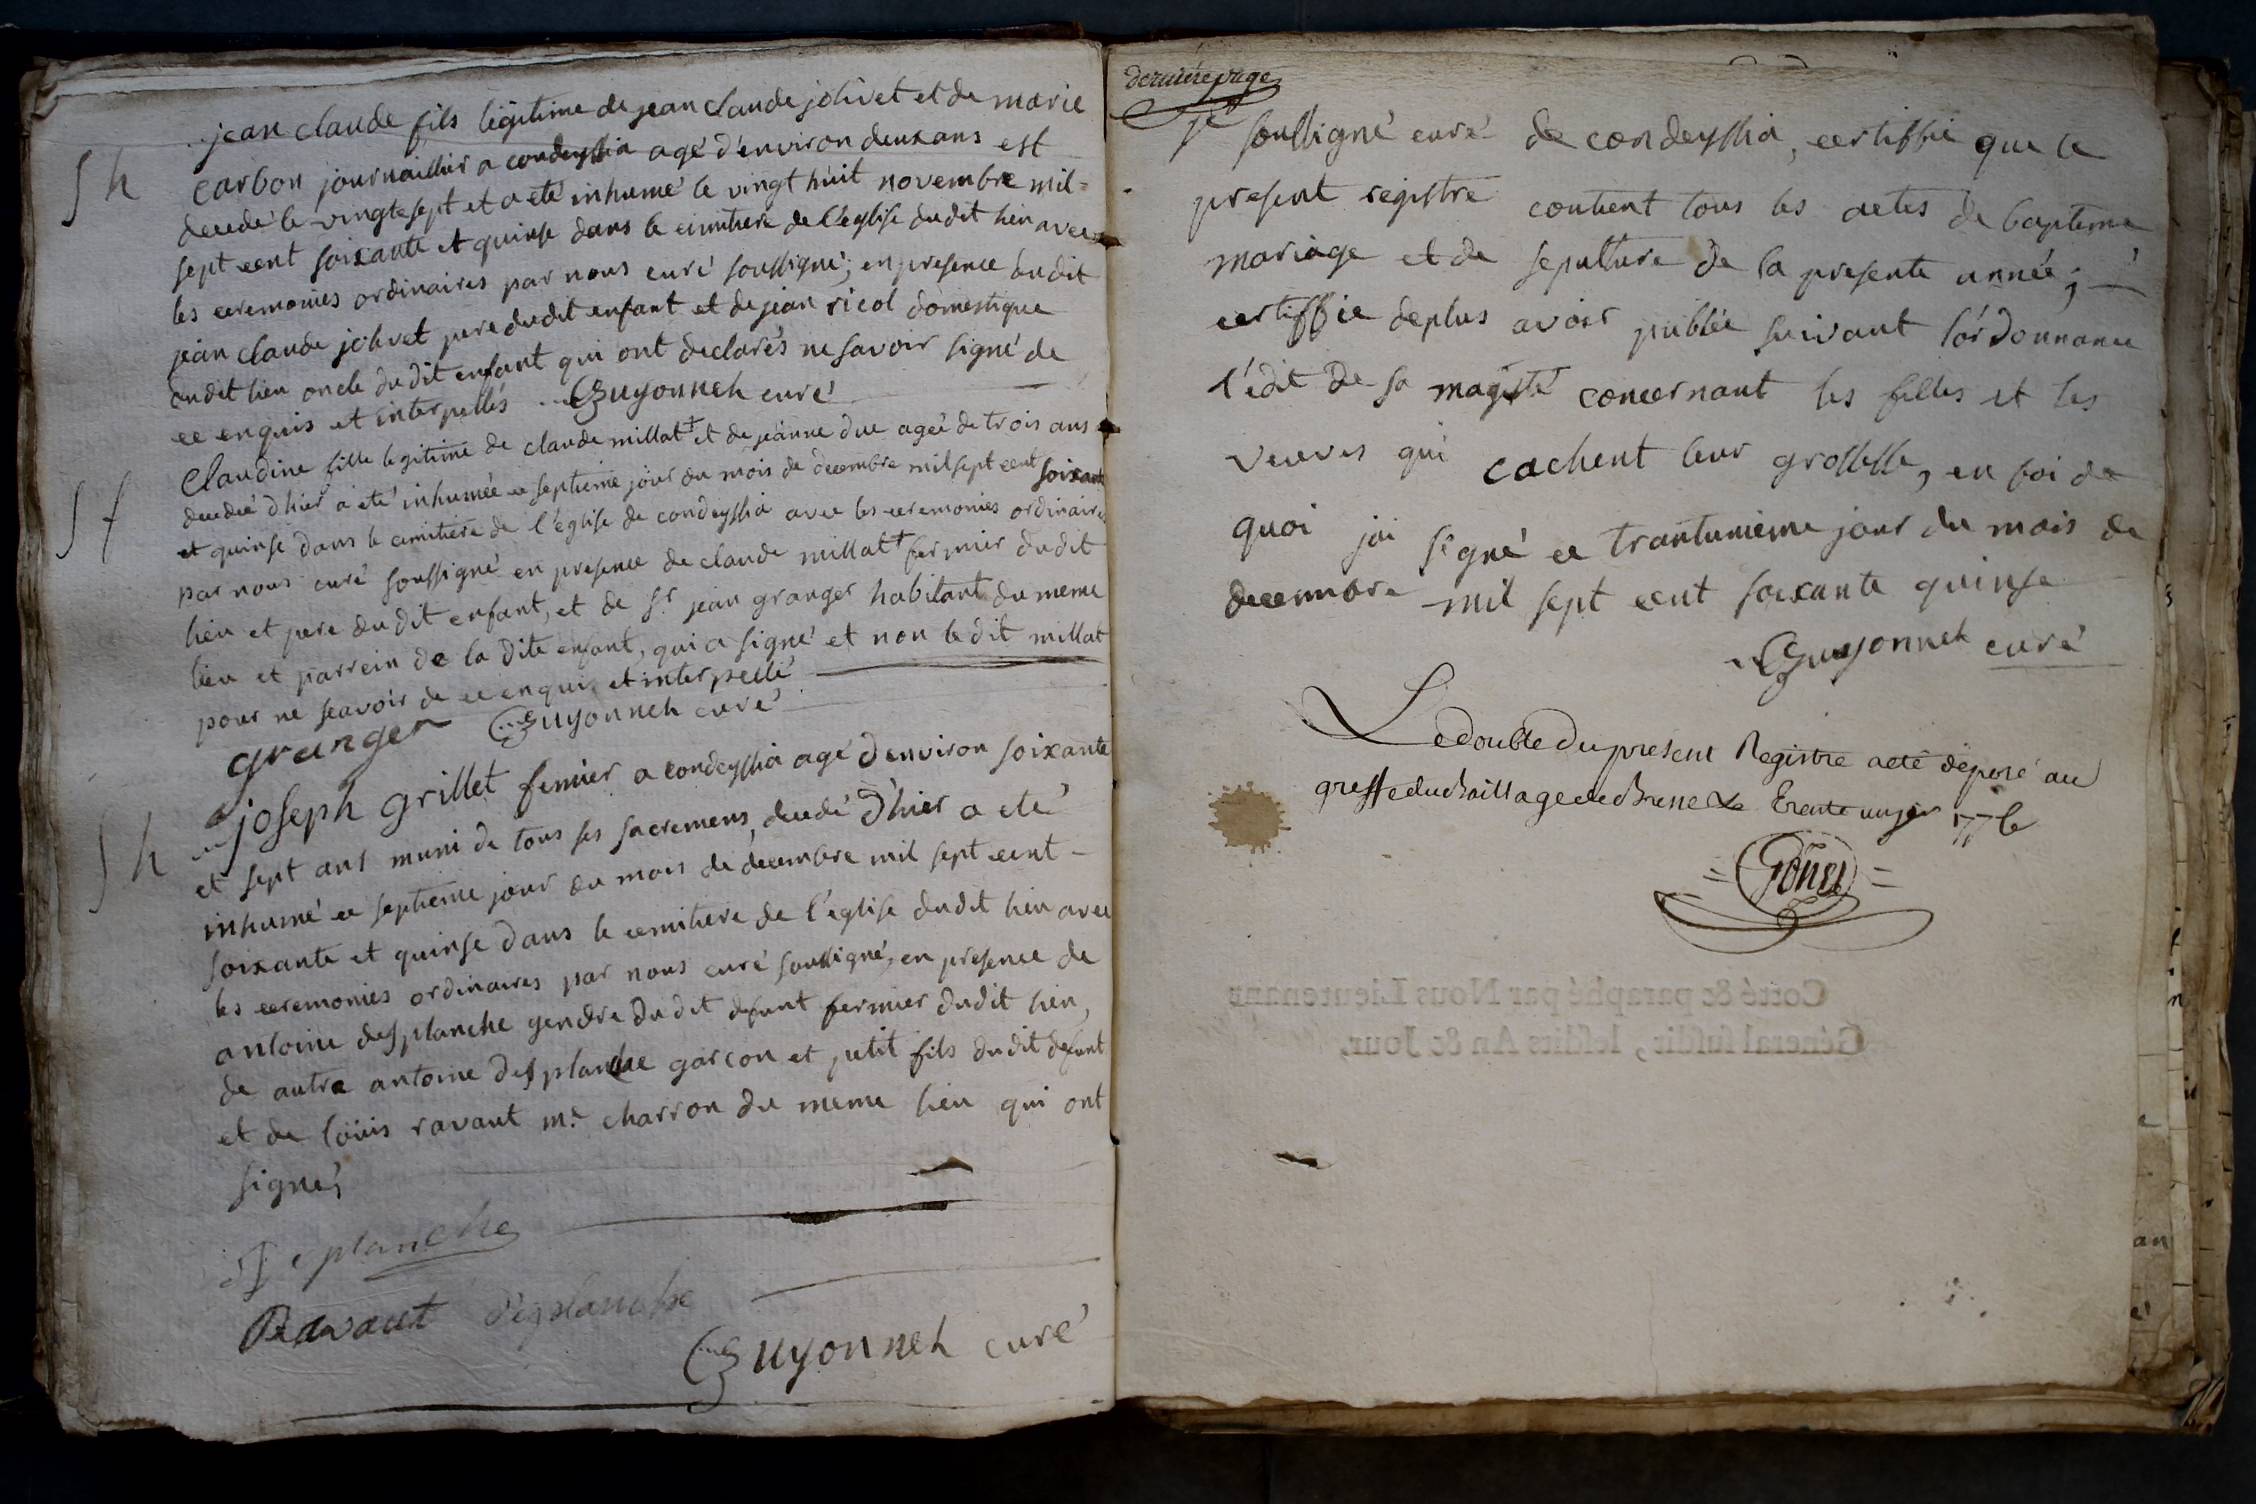 jean claude fils légitime de jean claude jolivet et de marie
S h
carbon journaillier a condeyssia agé d'environ deux ans est
decedé le vingtesept et a eté inhumé le vingt húit novembre mil=
sept cent soixante et quinse dans le cimitiere de l'eglise dudit lieu avec
les ceremonies ordinaires par nous curé soussigné; en presence dudit
jean claude jolivet pere dudit enfant et de jean ricol domestique
audit lieu oncle dudit enfant qui ont declarés ne savoir signé de
ce enquis et interpellés Guyonneh curé
S f
Claudine fille legitime de claude millat et de jeanne duc ageé de trois ans
decedeé d'hier a eté inhumée ce septieme jour du mois de decembre mil sept cent soixante
et quinse dans le cimitiere de l'eglise de condeyssia avec les ceremonies ordinaires
par nous curé soussigné en presence de claude millat fermier dudit
lieu et pere dudit enfant, et de Sr jean granger habitant du meme
lieu et parrein de la dite enfant, qui a signé et non le dit millat
pour ne scavoir de ce enquis et interpellé
granger Guyonneh curé
S h
joseph grillet fermier a condeyssia agé d'environ soixante
et sept ans muni de tous ses sacremens, decedé d'hier a eté
inhumé ce septieme jour du mois de decembre mil sept cent -
soixante et quinse dans le cemitiere de l'eglise dudit lieu avec
les ceremonies ordinaires par nous curé soussigné, en presence de
antoine desplanche gendre dudit defunt fermier dudit lieu,
de autre antoine desplanche garcon et petit fils dudit defunt
et de loüis ravaut me charron du meme lieu qui ont
signé,
desplanche
Ravaut desplanche
Guyonneh curé
derniére page
je soussigné curé de condeyssia, certiffie que le
present registre contient tous les actes de bapteme
mariage et de sepulture de la presente année; —
certiffie deplus avoir publiée suivant l'ordonnance
l'édit de sa magisté concernant les filles et les
veuves qui cachent leur grossesse, en foi de
quoi jai signé ce trantunieme jour du mois de
decembre mil sept cent soixante quinse
Guyonneh curé
Le double du present Registre a eté déposé au
greffe du Baillage de Bresse Le Trente un jer 1776
= Gones =
Cotté & paraphé par Nous Lieutenant
Général susdit, lesdits An & Jour.